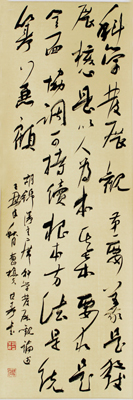 科学发展观第一要义是发
展核心是以人为本基本要求是
全面协调可持续根本方法是统
筹兼顾
胡锦涛主席科学发展观论述